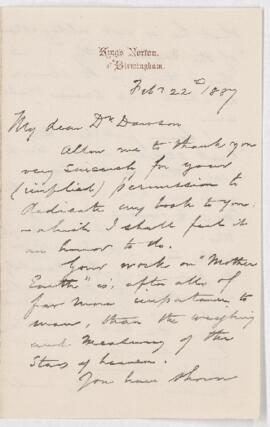 King's Norton.
Nr Birmingham.
Feb. 22nd 1887
My dear Dr Dawson
Allow me to thank you
very sincerely for your
(implied) permission to
dedicate my book to you:
- which I shall feel it
an honor to do.
Your work on "Mother
Earth" is, after all, of
far more importance to
man, than the weighing
and measuring of the
Stars of heaven.
You have shown